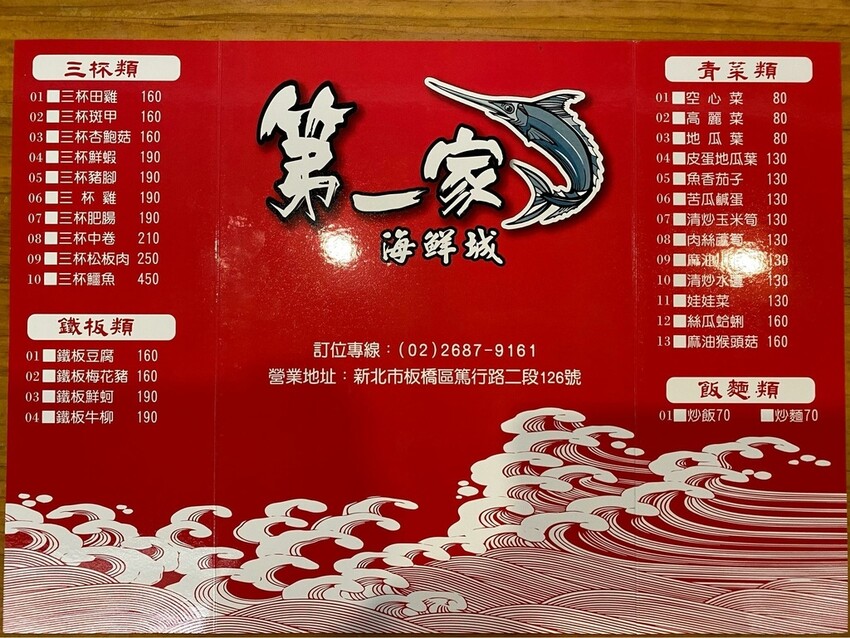 三杯類
01 三杯田雞 160
02 三杯斑甲 160
03 三杯杏鮑菇 160
04 三杯鮮蝦 190
05 三杯豬腳 190
06 三杯雞 190
07 三杯肥腸 190
08 三杯中卷 210
09 三杯松板肉 250
10 三杯鱷魚 450
鐵板類
01 鐵板豆腐 160
02 鐵板梅花豬 160
03 鐵板鮮蚵 190
04 鐵板牛柳 190
第一家
海鮮城
訂位專線：(02)2687-9161
營業地址：新北市板橋區篤行路二段126號
青菜類
01 空心菜 80
02 高麗菜 80
03 地瓜葉 80
04 皮蛋地瓜葉 130
05 魚香茄子 130
06 苦瓜鹹蛋 130
07 清炒玉米筍 130
08 肉絲蘆筍 130
09 麻油 130
10 清炒水蓮 130
11 娃娃菜 130
12 絲瓜蛤蜊 160
13 麻油猴頭菇 160
飯麵類
01 炒飯70 炒麵70